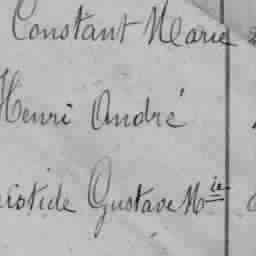 Constant Marie
Henri André
istide Gustave Mie